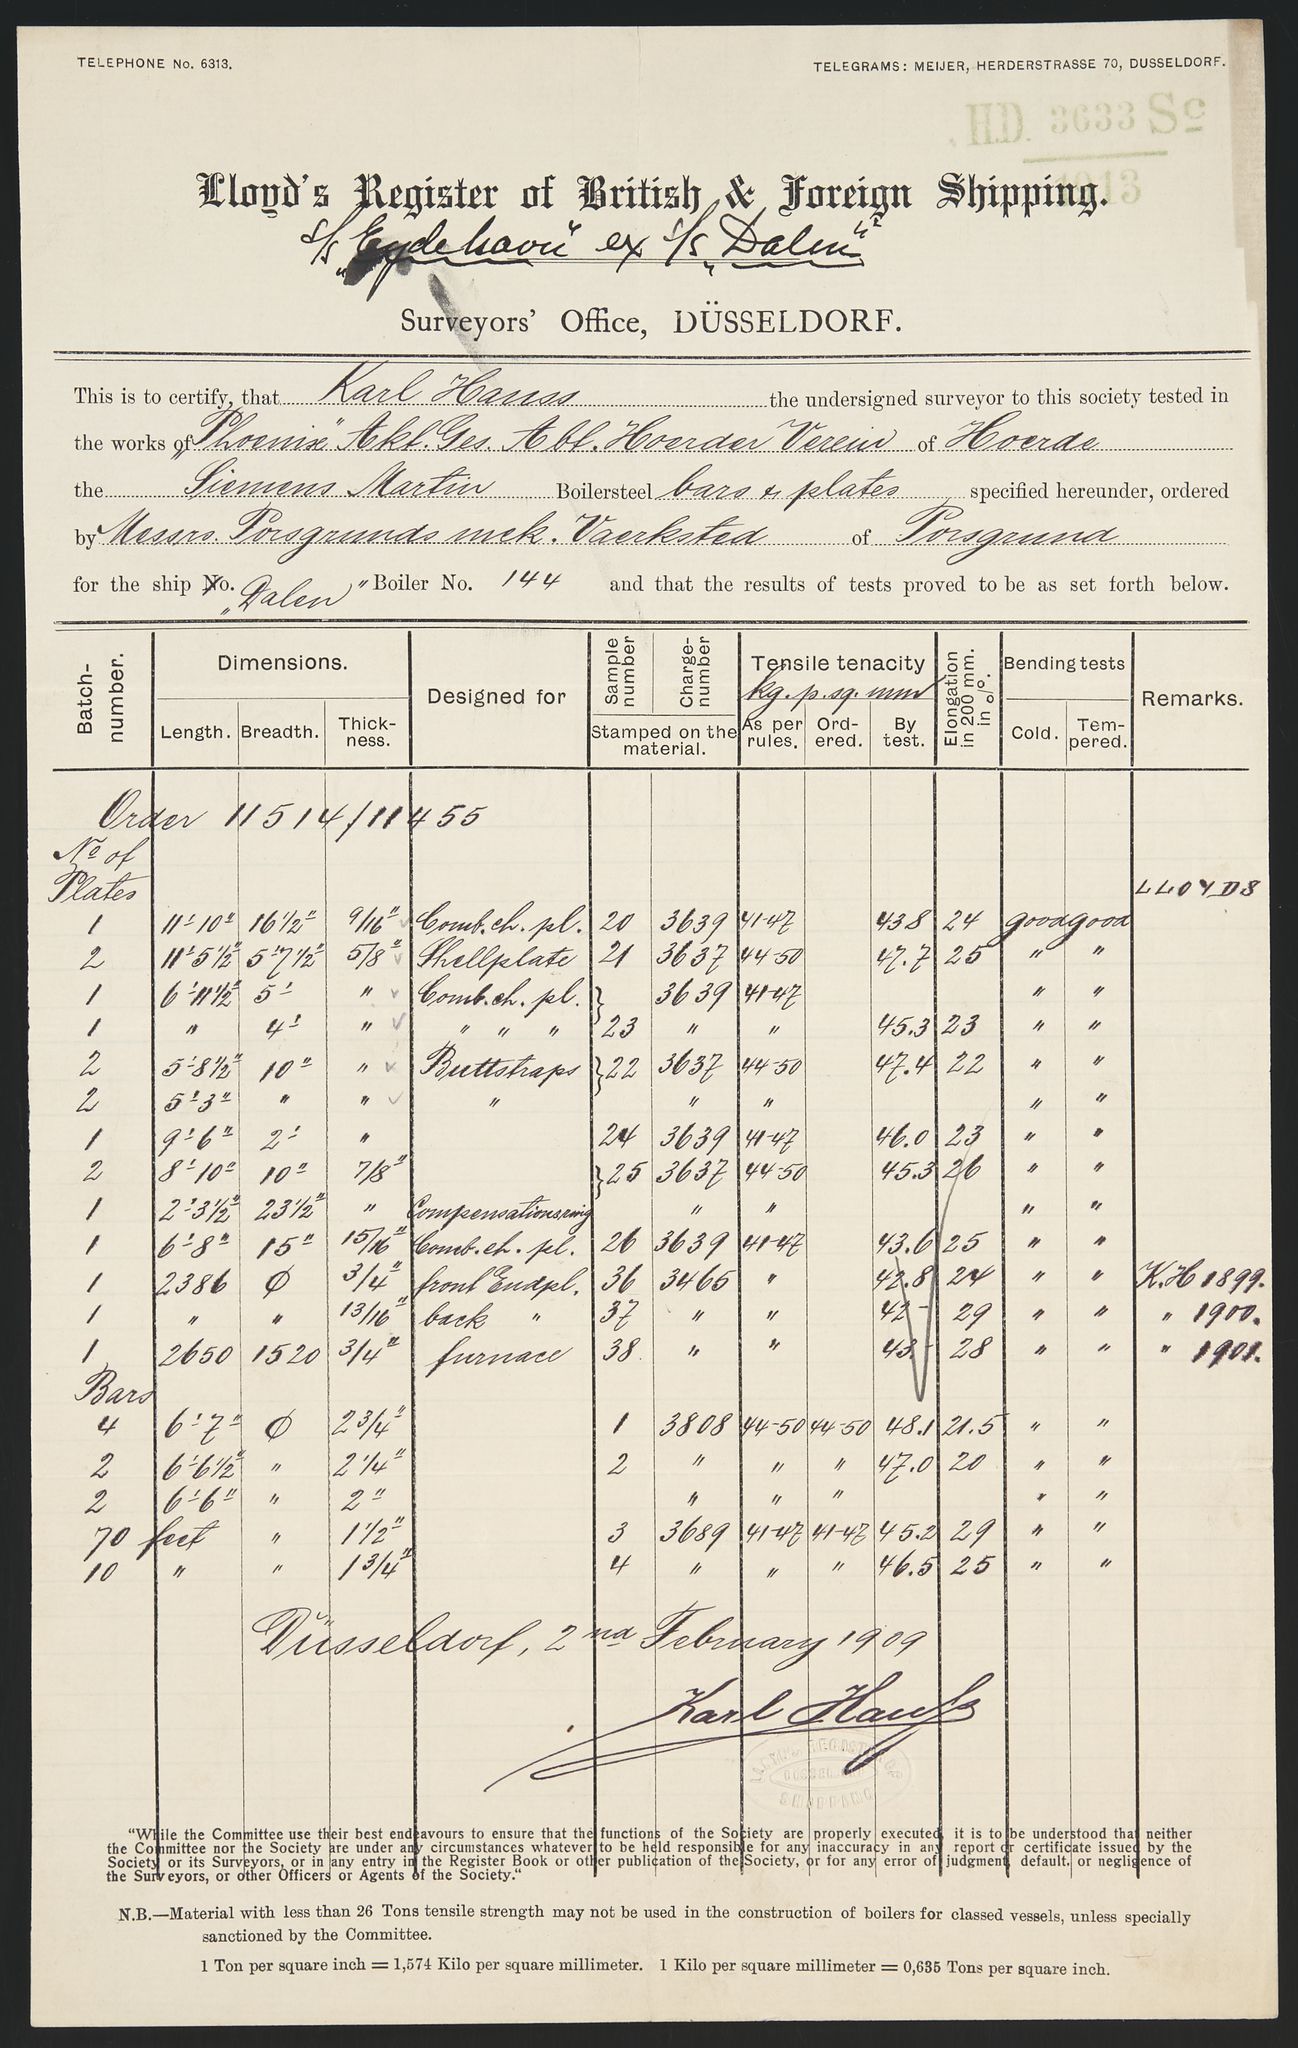 TELEPHONE No. 6313. TELEGRAMS: MEIJER, HERDERSTRASSE 70, DUSSELDORF.
H.D. 3633 Sc
1913
Lloyd's Register of British & Foreign Shipping.
s/s "Eydehavn" ex s/s "Dalen"
Surveyors' Office, DÜSSELDORF.
This is to certify, that Karl Hauss the undersigned surveyor to this society tested in
the works of "Phoenix" Akt. Ges. Abt. Hoerder Verein of Hoerde
the Siemens Martin Boilersteel bars & plates specified hereunder, ordered
by Messrs. Porsgrunds mek. Vaerksted of Porsgrund
for the ship No. "Dalen" Boiler No. 144 and that the results of tests proved to be as set forth below.
Batch-number. Dimensions. Designed for Sample number Charge-number Tensile tenacity Elongation in 200 mm. in o/o. Bending tests Remarks.
kg. p. sq. mm
Length. Breadth. Thick-ness. Stamped on the material. As per rules. Ord-ered. By test. Cold. Tem-pered.
Order 11514/11455
No of
Plates LLOYDS
1 11'-10" 16 1/2" 9/16" Comb. ch. pl. 20 3639 41-47 43.8 24 good good
2 11'-5 1/2" 5'-7 1/2" 5/8" Shellplate 21 3637 44-50 47.7 25 " "
1 6'-11 1/2" 5' " Comb. ch. pl. } 3639 41-47 " "
1 " 4' " " " " 23 " " 45.3 23 " "
2 5'-8 1/2" 10" " Buttstraps } 22 3637 44-50 47.4 22 " "
2 5'-3" " " " " " " "
1 9'-6" 2' " 24 3639 41-47 46.0 23 " "
2 8'-10" 10" 7/8" } 25 3637 44-50 45.3 26 " "
1 2'-3 1/2" 23 1/2" " Compensationsring " " " "
1 6'-8" 15" 15/16" Comb. ch. pl. 26 3639 41-47 43.6 25 " "
1 2386 Ø 3/4" front Endpl. 36 3465 " 42.8 24 " " K.H 1899.
1 " " 13/16" back " 37 " " 42- 29 " " " 1900.
1 2650 1520 3/4" furnace 38 " " 43.- 28 " " " 1901.
Bars
4 6'-7" Ø 2 3/4" 1 3808 44-50 44-50 48.1 21.5 " "
2 6'-6 1/2" " 2 1/4" 2 " " " 47.0 20 " "
2 6'-6" " 2" " " " " "
70 feet " 1 1/2" 3 3689 41-47 41-47 45.2 29 " "
10 " " 1 3/4" 4 " " " 46.5 25 " "
Düsseldorf, 2nd February 1909
Karl Hauß
"While the Committee use their best endeavours to ensure that the functions of the Society are properly executed, it is to be understood that neither
the Committee nor the Society are under any circumstances whatever to be held responsible for any inaccuracy in any report or certificate issued by the
Society or its Surveyors, or in any entry in the Register Book or other publication of the Society, or for any error of judgment, default, or negligence of
the Surveyors, or other Officers or Agents of the Society."
N.B.—Material with less than 26 Tons tensile strength may not be used in the construction of boilers for classed vessels, unless specially
sanctioned by the Committee.
1 Ton per square inch = 1,574 Kilo per square millimeter. 1 Kilo per square millimeter = 0,635 Tons per square inch.